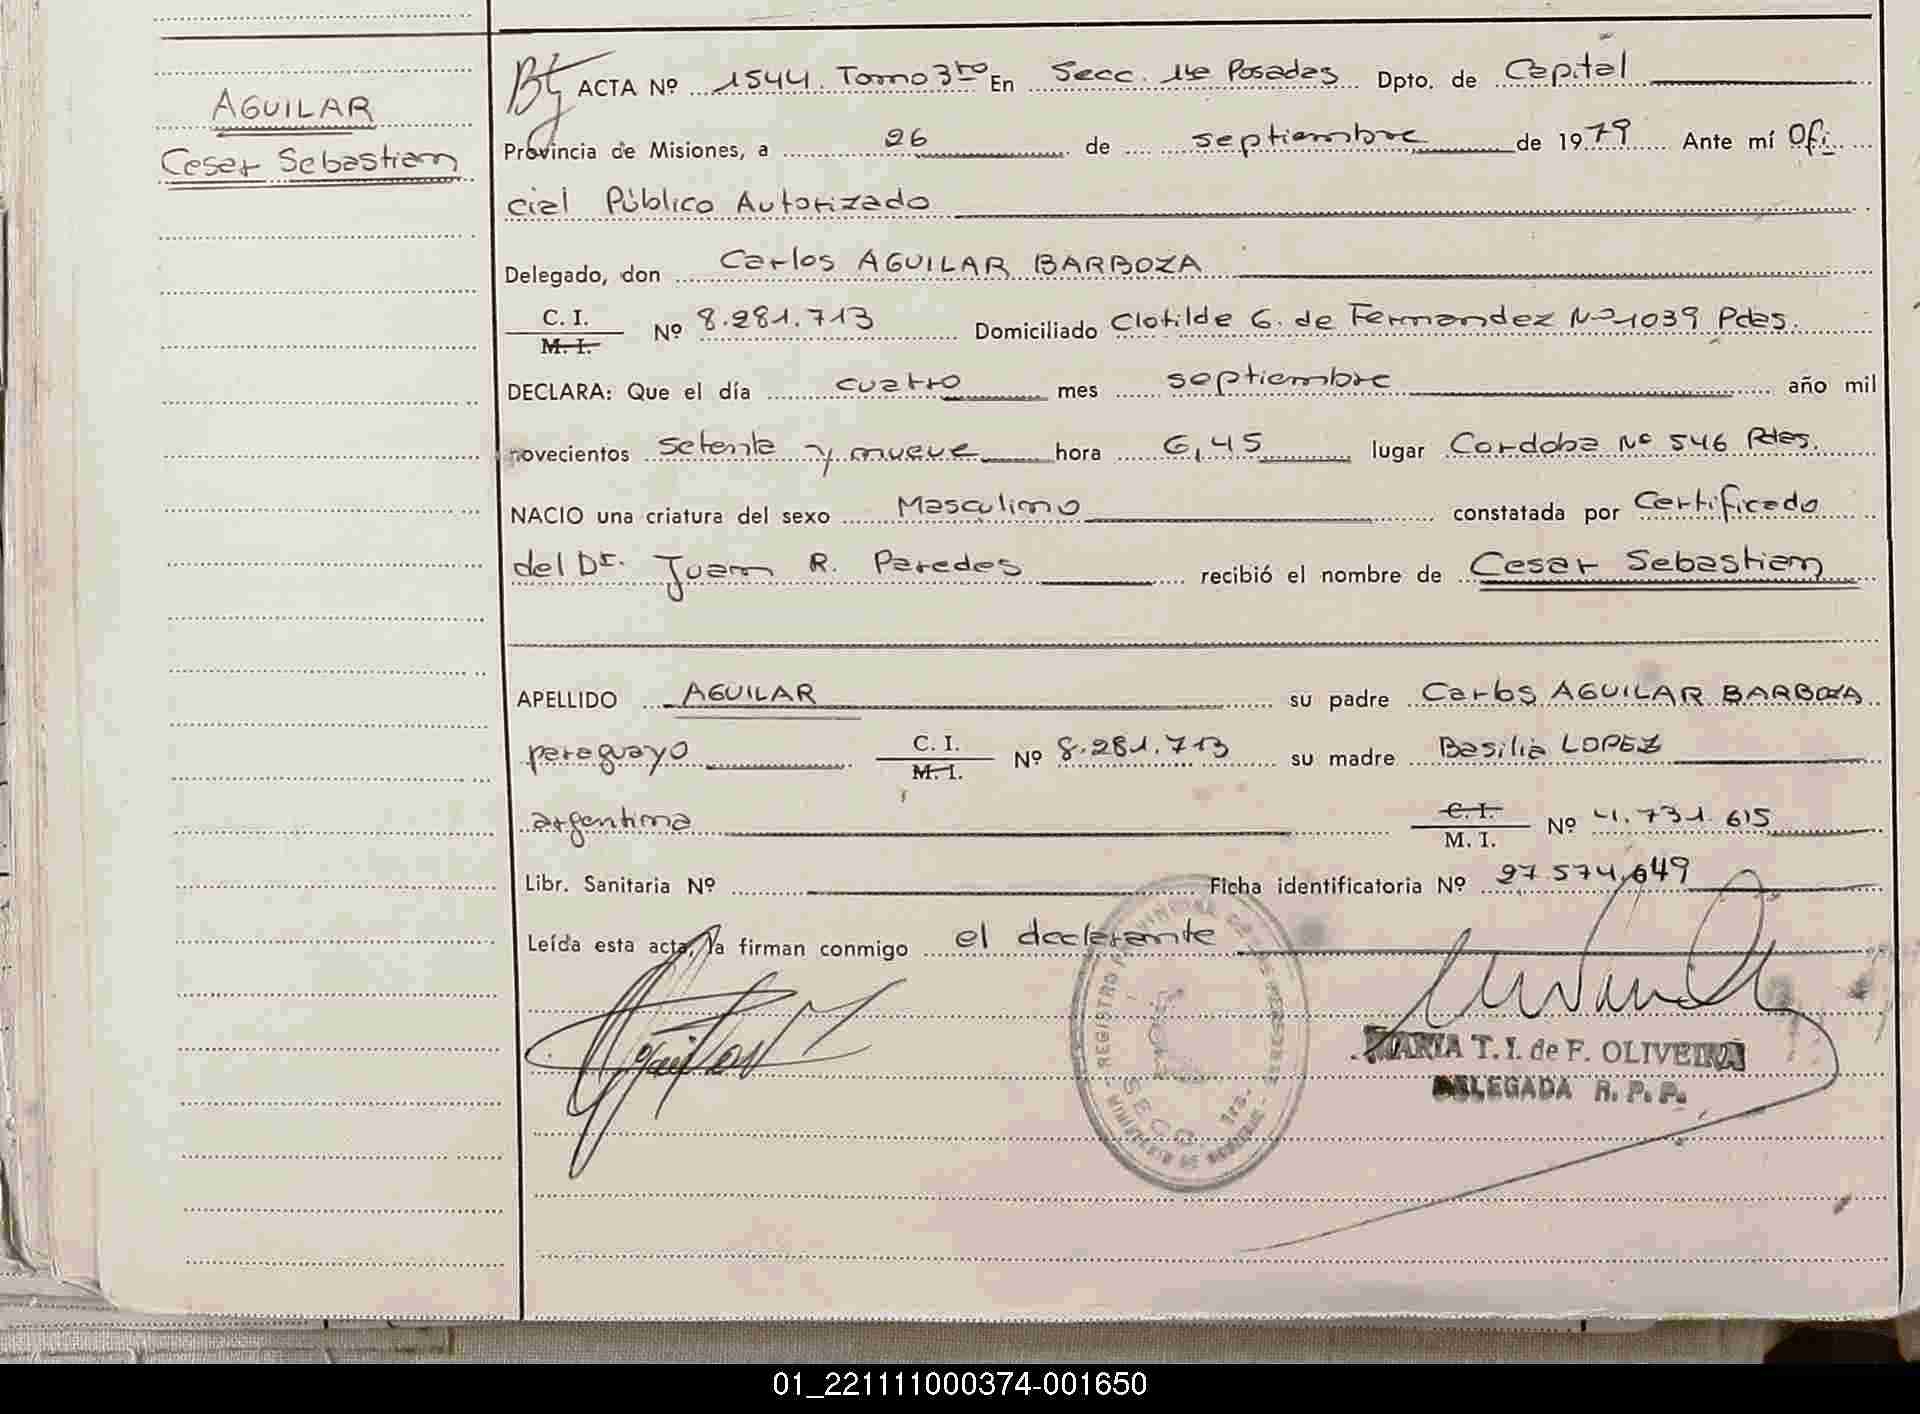 AGUILAR
Cesar Sebastian
ACTA Nº 1544. Tomo 3ro En Secc. 1ra Posadas Dpto. de Capital
Provincia de Misiones, a 26 de septiembre de 1979 Ante mí Ofi
cial Público Autorizado
Delegado, don Carlos AGUILAR BARBOZA
C. I.
M. I. Nº 8.281.713 Domiciliado Clotilde G. de Fernandez Nº 1039 Pdas.
DECLARA: Que el día cuatro mes septiembre año mil
novecientos setenta y nueve hora 6,45 lugar Cordoba Nº 546 Pdas.
NACIO una criatura del sexo Masculino constatada por Certificado
del Dr. Juan R. Paredes recibió el nombre de Cesar Sebastian
APELLIDO AGUILAR su padre Carlos AGUILAR BARBOZA
paraguayo C. I.
M. I. Nº 8.281.713 su madre Basilia LOPEZ
argentina C. I.
M. I. Nº 4.731.615
Libr. Sanitaria Nº Ficha identificatoria Nº 27.574.649
Leída esta acta, la firman conmigo el declarante
REGISTRO PROVINCIAL DE LAS PERSONAS
SECC. 1ra.
MINISTERIO DE GOBIERNO
MARIA T. I. de F. OLIVEIRA
DELEGADA R. P. P.
01_221111000374-001650